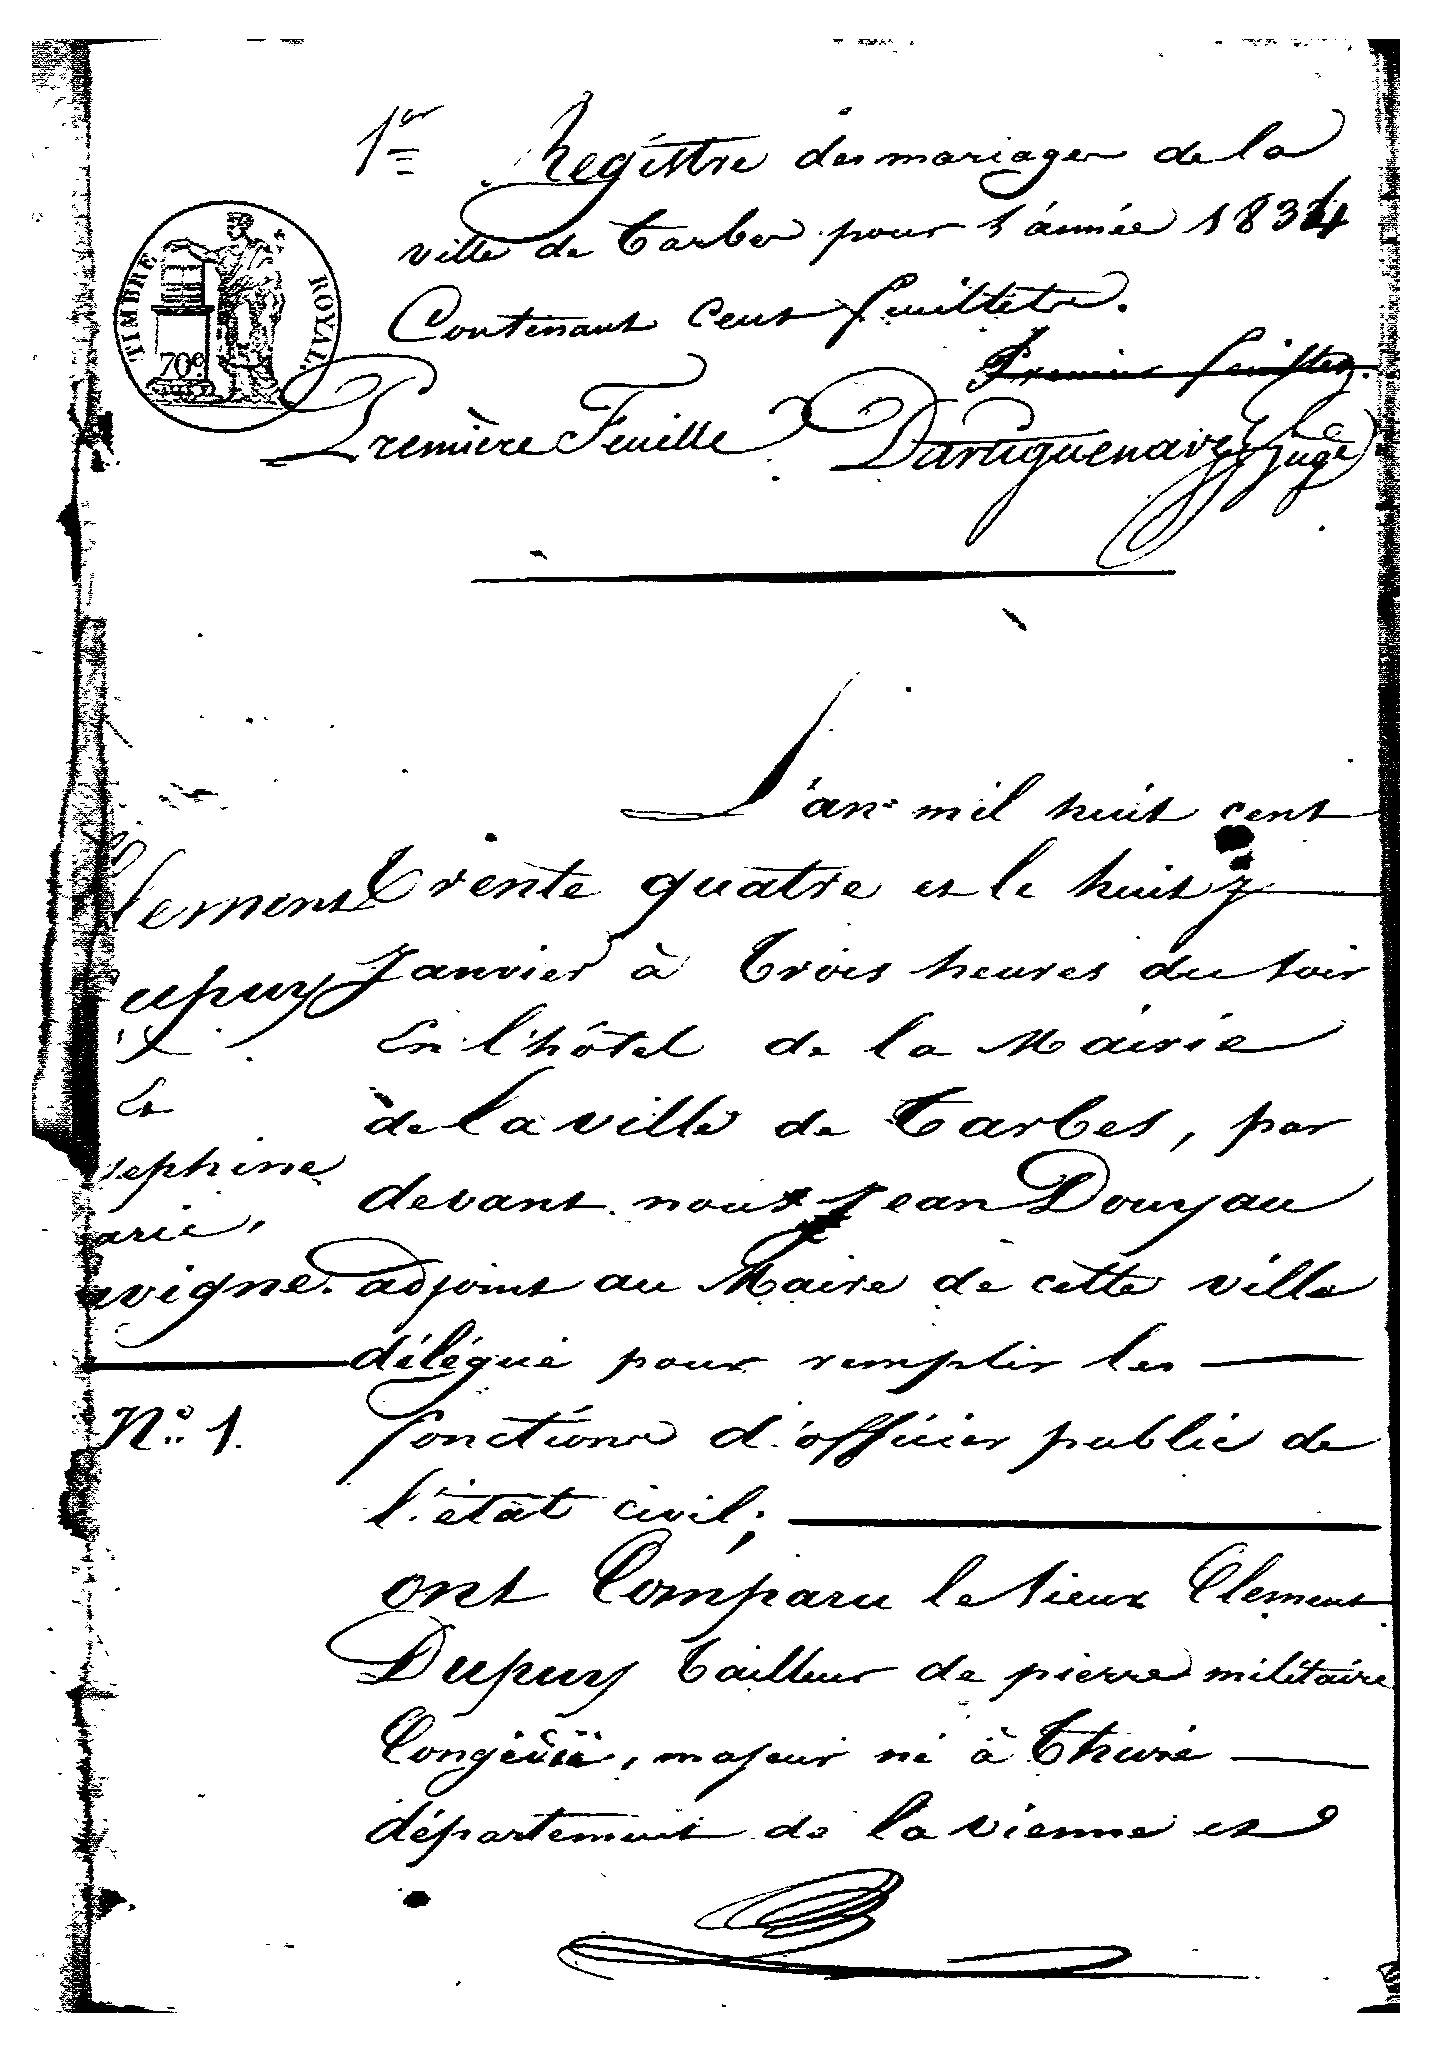 1er Registre des mariages de la
ville de Tarbes pour l'année 1834
Contenant Cent feuillets.
Premier feuillet.
TIMBRE ROYAL.
70c
Première Feuille
Juge
L'an mil huit cent
trente quatre et le huit
Janvier à trois heures du soir
En l'hôtel de la Mairie
de la ville de Tarbes, par
devant nous Jean Douyau
adjoint au Maire de cette ville
délégué pour remplir les
fonctions d'officier public de
l'état civil;
lement
upuy
Et
sephine
arie,
vigne.
N.º 1.
ont Comparu le sieur Clement
Dupuy tailleur de pierre militaire
Congédié, majeur né à Thuré
département de la vienne et